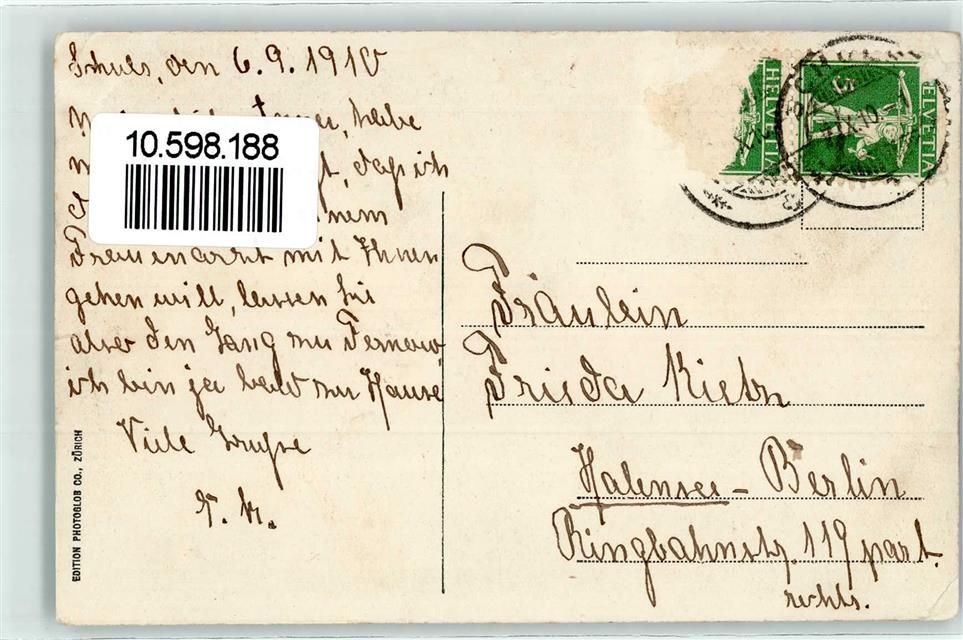 Schuls, den 6. 9. 1910
habe
dass ich
10.598.188
Frauenarzt mit Ihnen
gehen will, lassen Sie
aber den Gang zu Fernow,
ich bin ja bald zu Hause
Viele Grüsse
F. K.
EDITION PHOTOGLOB CO., ZÜRICH
HELVETIA
HELVETIA
5
Fräulein
Frieda Kietz
Halensee - Berlin
Ringbahnstr. 119 part.
rechts.